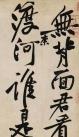 無背面君看
渡河誰是